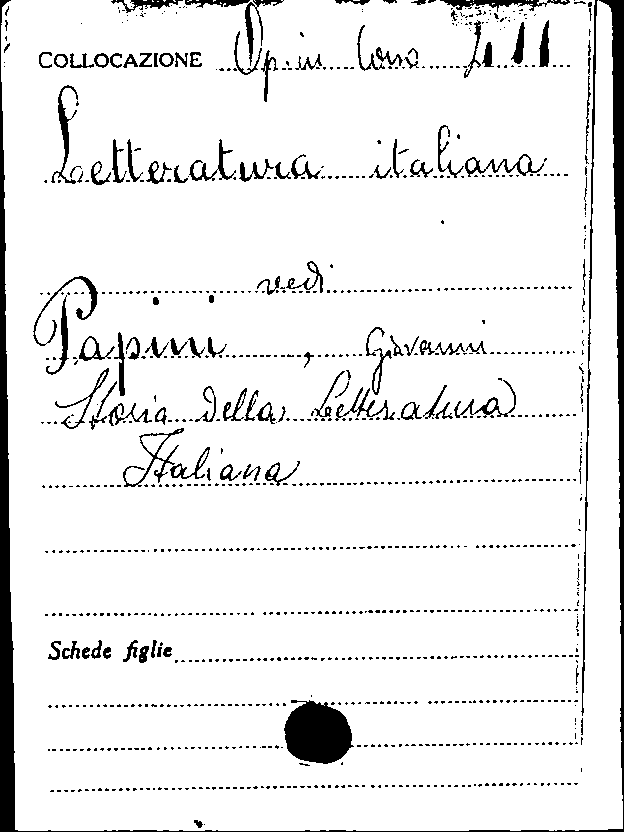 COLLOCAZIONE Op. in Corso
Letteratura italiana
vedi
Papini, Giovanni
Storia della Letteratura
Italiana
Schede figlie